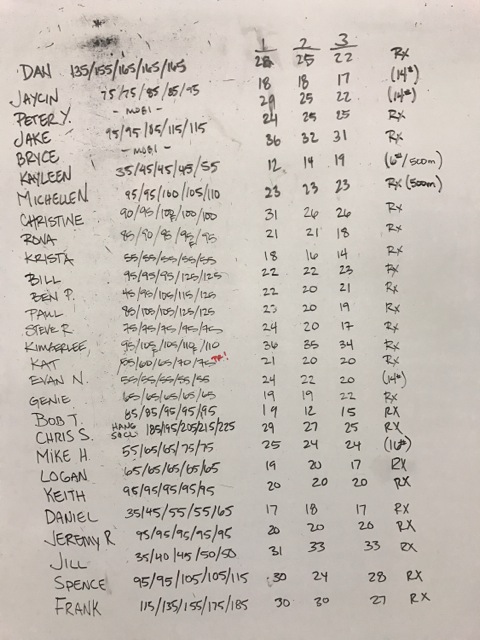 1 2 3
DAN 135/155/165/165/165 28 25 22 RX
JAYCIN 75/75/85/85/95 18 18 17 (14#)
PETER Y. - MOBI - 29 25 22 (14#)
JAKE 95/95/105/115/115 24 25 25 RX
BRYCE - MOBI - 36 32 31 RX
KAYLEEN 35/45/45/45/55 12 14 19 (6#/500m)
MICHELLEN 95/95/100/105/110 23 23 23 RX (500m)
CHRISTINE 90/95/100/100/100 31 26 26 RX
RONA 85/90/95/95/95 21 21 18 RX
KRISTA 55/55/55/55/55 18 16 14 RX
BILL 95/95/95/125/125 22 22 23 RX
BEN P. 45/95/105/115/125 22 20 21 RX
PAUL 85/105/105/125/125 23 20 19 RX
STEVE R 75/75/75/95/75 24 20 17 RX
KIMBERLEE 95/105/105/110/110 36 35 34 RX
KAT 55/60/65/70/75 PR! 21 20 20 RX
EVAN N. 55/55/55/55/55 24 22 20 (14#)
GENIE 65/65/65/65/65 19 19 22 RX
BOB T. 85/85/95/95/95 19 12 15 RX
CHRIS S. HANG 185/195/205/215/225 29 27 25 RX
MIKE H. 55/65/65/75/75 25 24 24 (16#)
LOGAN 65/65/65/65/65 19 20 17 RX
KEITH 95/95/95/95/95 20 20 20 RX
DANIEL 35/45/55/55/65 17 18 17 RX
JEREMY R 95/95/95/95/95 20 20 20 RX
JILL 35/40/45/50/50 31 33 33 RX
SPENCE 95/95/105/105/115 30 24 28 RX
FRANK 115/135/155/175/185 30 30 27 RX